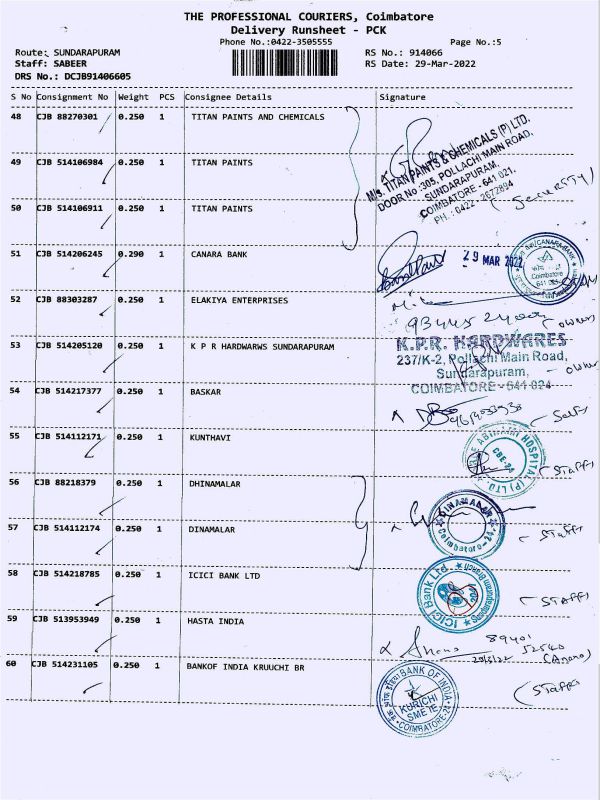 THE PROFESSIONAL COURIERS, Coimbatore
Delivery Runsheet - PCK
Phone No.:0422-3505555
Page No.:5
Route: SUNDARAPURAM
RS No.: 914066
Staff: SABEER
RS Date: 29-Mar-2022
DRS No.: DCJB91406605
S No Consignment No Weight PCS Consignee Details Signature
48 CJB 88270301 0.250 1 TITAN PAINTS AND CHEMICALS
M/s. TITAN PAINTS & CHEMICALS (P) LTD.
DOOR No:305, POLLACHI MAIN ROAD,
SUNDARAPURAM,
COIMBATORE - 641 021.
PH.: 0422-2672894
49 CJB 514106984 0.250 1 TITAN PAINTS
50 CJB 514106911 0.250 1 TITAN PAINTS
(Security)
51 CJB 514206245 0.290 1 CANARA BANK
29 MAR 2022
CANARA BANK
Coimbatore
641 021
52 CJB 88303287 0.250 1 ELAKIYA ENTERPRISES
owner
53 CJB 514205120 0.250 1 K P R HARDWARWS SUNDARAPURAM
K.P.R. HARDWARES
237/K-2, Pollachi Main Road,
Sundarapuram,
COIMBATORE - 641 024
- owner
54 CJB 514217377 0.250 1 BASKAR
(Self)
55 CJB 514112171 0.250 1 KUNTHAVI
ABIRAMI HOSPITAL (P) LTD.
CBE-24
(Staff)
56 CJB 88218379 0.250 1 DHINAMALAR
57 CJB 514112174 0.250 1 DINAMALAR
DINAMALAR
Coimbatore-24
(Staff)
58 CJB 514218785 0.250 1 ICICI BANK LTD
ICICI Bank Ltd.
Sundarapuram Branch
(Staff)
59 CJB 513953949 0.250 1 HASTA INDIA
89401
52540
60 CJB 514231105 0.250 1 BANKOF INDIA KRUUCHI BR
BANK OF INDIA
KURICHI
SME
COIMBATORE-24
(Staff)